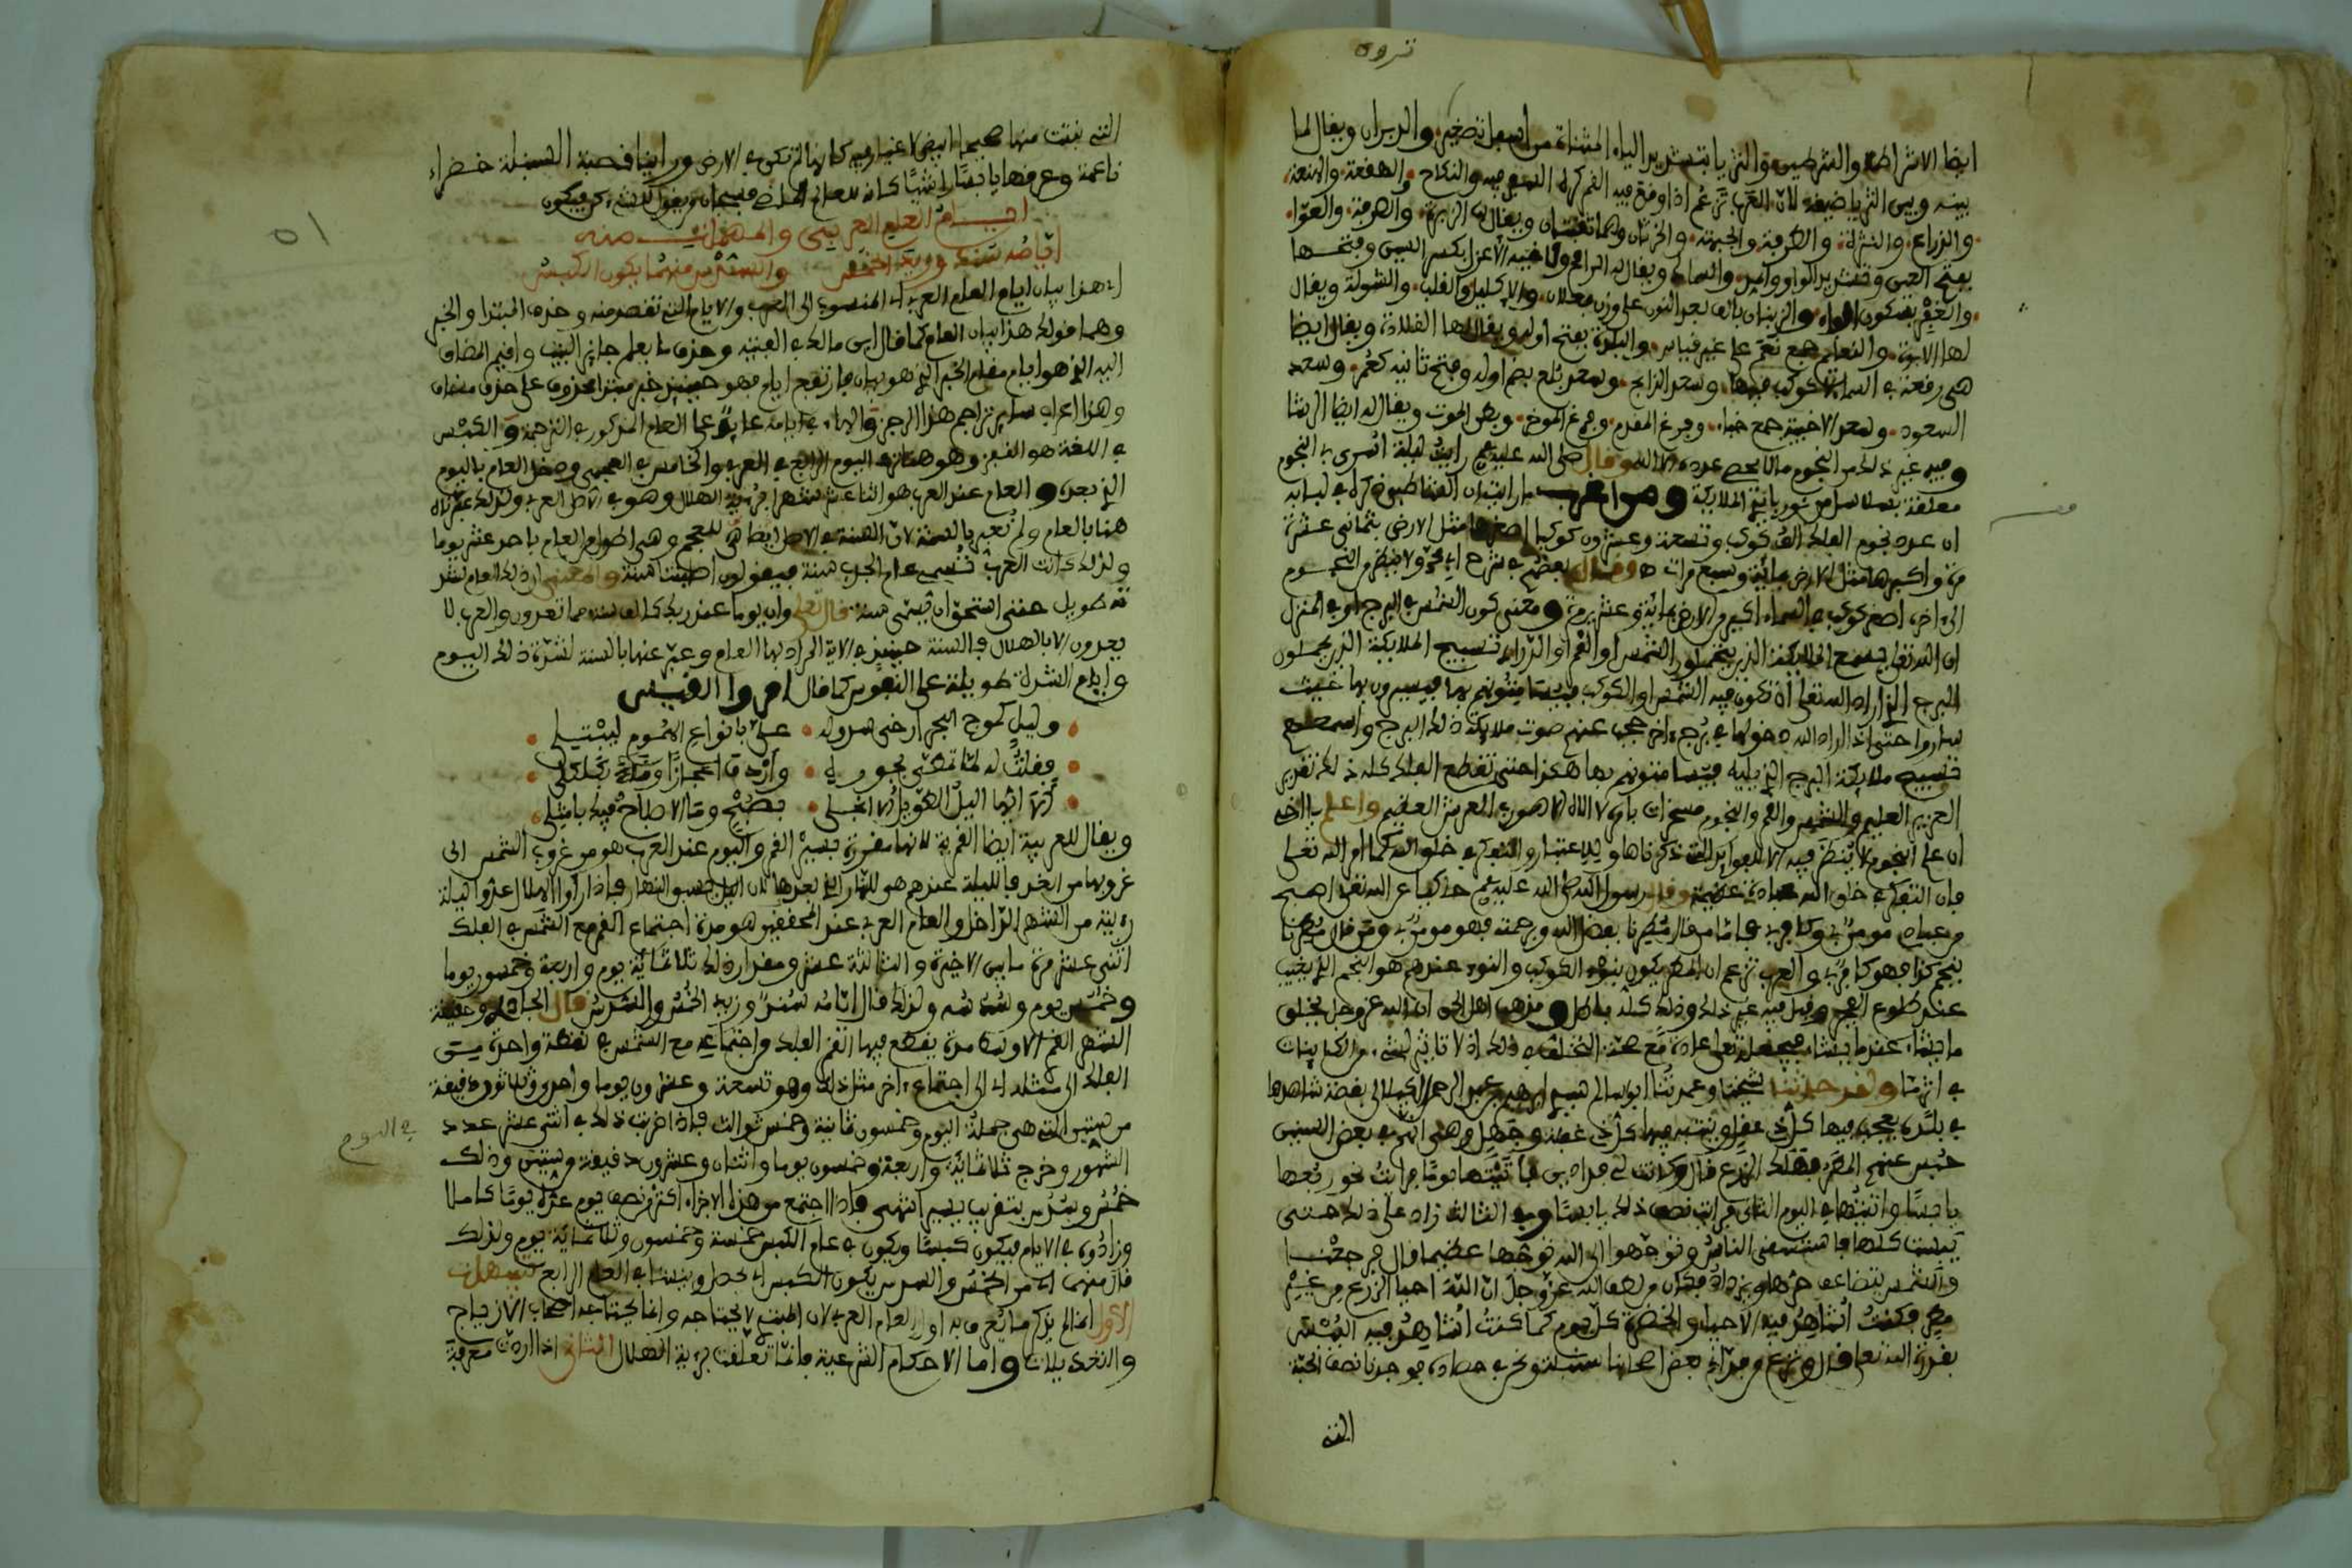 ترون
ايضا الاشراط والشرطين والثريا بتشديد الياء المثناة من اسفل تصغير والدبران ويقال لما
بينه وبين الثريا ضيقة لان العرب تزعم اذا وقع فيه القمر كره السفر فيه والنكاح والهقعة والهنعة
والذراع والنثرة والطرفة والجبهة والخرتان وهما نجمان ويقال لها الزبرة والصرفة والعوا
بفتح العين وتشديد الواو والسماك ويقال له الرامح والاعزل بكسر السين وفتحها
والغفر بسكون الفاء والزبنان بالف بعد النون على وزن فعلان والاكليل والقلب والشولة ويقال
لها الابرة والنعايم جمع نعم على غير قياس والبلدة بفتح اوله ويقال لها القلادة ويقال ايضا
هي رقعة في السماء لا كوكب فيها وسعد الذابح وسعد بلع بضم اوله وفتح ثانيه كعمر وسعد
السعود وسعد الاخبية جمع خباء وفرغ المقدم وفرغ الموخر وبطن الحوت ويقال له ايضا الرشا
وفيه غير ذلك من النجوم ما لا يحصى عدده الا الله وقال صلى الله عليه وسلم رايت ليلة اسري بي النجوم
معلقة بسلاسل من نور بايدي الملايكة ومن اغرب ما رايت ان القسطلاني ذكر في لبابه
ان عدد نجوم الفلك الف كوكب وتسعة وعشرون كوكبا اصغرها مثل الارض ثماني عشرة
مرة واكبرها مثل الارض مائة وسبع مرات وقال بعضهم في شرح
الى اخره اصغر كوكب في السماء اكبر من الارض مائة وعشرين مرة ومعنى كون الشمس في البرج او في المنزل
ان الله تعالى جمع الملايكة الذين يحملون الشمس او القمر او الدراري تسبيح الملايكة الذين يحملون
البرج الذي اراد الله تعالى ان تكون فيه الشمس او الكوكب فيستانسون بها فيسيرون بها حيث
ساروا حتى اذا اراد الله دخولها في برج اخر حجب عنهم صوت ملايكة ذلك البرج واسمعهم
تسبيح ملايكة البرج الذي يليه فيستانسون بها هكذا حتى تقطع الفلك كله ذلك تقدير
العزيز العليم والشمس والقمر والنجوم مسخرات بامره لا اله الا هو رب العرش العظيم واعلم يا اخي
ان علم النجوم لا ينظر فيه الا للفوايد التي ذكرناها وللاعتبار والتفكر في خلق الله كما امر الله تعالى
فان التفكر في خلق الله عبادة عظيمة وقال رسول الله صلى الله عليه وسلم حاكيا عن الله تعالى اصبح
من عبادي مومن بي وكافر بي فاما من قال مطرنا بفضل الله ورحمته فهو مومن بي ومن قال مطرنا
بنجم كذا فهو كافر بي والعرب تزعم ان المطر يكون بنوء الكوكب والنوء عندهم هو النجم الذي يغيب
عند طلوع الفجر وقيل فيه غير ذلك وذلك كله باطل ومذهب اهل الحق ان الله عز وجل يخلق
ما يشاء عندما يشاء فيجعله تعالى عادة مع صحة التخلف في ذلك اذ لا تاثير لشيء من الكاينات
في اثر ما ولقد حدثنا شيخنا وعمدتنا ابو سالم سيدي ابراهيم بن عبد الرحمن الكيلالي بقصة شاهدها
في بلده يعجب فيها كل ذي عقل وينتبه فيها كل ذي غفلة وجهل وهي انهم في بعض السنين
حبس عنهم المطر فهلك الزرع قال وكانت لي فدادين فاتيتها يوما فرايت نحو ربعها
يابسا واتيتها في اليوم الثاني فرايت نصف ذلك يابسا وفي الثالث زاد على ذلك حتى
يبست كلها فاستسقى الناس وتوجهوا الى الله توجها عظيما قال فرجعت
والشمس يتضاعف حرها ويزداد فكان من لطف الله عز وجل ان الله احيا الزرع من غير
مطر فكنت اشاهد فيه الاحياء والخضرة كل يوم كما كنت اشاهد فيه اليبس
بقدرة الله تعالى قال ونزع من فدان بعض اصحابنا سنبلة ونحن في حصاده فوجدنا نصف الحبة
التي
٥١
التي نبتت منها صحيحا ابيض لا غبار فيه كانها لم تكن في الارض وراينا قصبة السنبلة خضراء
ناعمة وعرفها يابسا راشيا كانه للعام الماضي فسبحان من يقول للشيء كن فيكون
ايام العام العربي والـ منه
ايامه شند وزد خمس والسدس منهما يكون الكبس
اي هذا بيان ايام العام العربي اي المنسوب الى العرب والايام التي تنقص منه وحذف المبتدا والخبر
وهما قولك هذا بيان العام كما قال ابن مالك في الالفية وحذف ما يعلم جايز البيت واقيم المضاف
اليه الذي هو ايام مقام الخبر الذي هو بيان فارتفع ايام فهو حينئذ خبر مبتدا محذوف على حذف مضاف
وهذا اعراب ساير تراجم هذا الرجز والهاء في ايامه عايد على العام المذكور في الترجمة والكبس
في اللغة هو القفز وهو هنا زيادة اليوم الرابع في العربي والخامس في العجمي ودخل العام باليوم
الذي بعده والعام عند العرب هو اثنا عشر شهرا برؤية الهلال وهو في الاصل للعرب ولذلك عبر به
هنا بالعام ولم يعبر بالسنة لان السنة في الاصل ايضا هي للعجم وهي اطول من العام باحد عشر يوما
ولذلك كانت العرب تسمي عام الجدب سنة فيقولون اصابتنا سنة والمعنى ان ذلك العام لشدته
طويل حتى استحق ان يسمى سنة قال تعالى وان يوما عند ربك كالف سنة مما تعدون والعرب لا
يعدون الا بالهلال فالسنة حينئذ في الاية المراد بها العام وعبر عنها بالسنة لشدة ذلك اليوم
وايام الشدة طويلة على النفوس كما قال امرؤ القيس
وليل كموج البحر ارخى سدوله علي بانواع الهموم ليبتلي
فقلت له لما تمطى بجوزه واردف اعجازا وناء بكلكل
الا ايها الليل الطويل الا انجلي بصبح وما الاصباح فيك بامثل
ويقال للعربية ايضا القمرية لانها مقدرة بسير القمر واليوم عند العرب هو من غروب الشمس الى
غروبها من الغد فالليلة عندهم هي للنهار الذي بعدها لان الليل يسبق النهار فاذا راوا الهلال عدوا ليلة
رؤيته من الشهر الداخل والعام العربي عند المحققين هو مدة اجتماع القمر مع الشمس في الفلك
اثنتي عشرة مرة ما بين الاخيرة والثالثة عشر ومقدار ذلك ثلاثمائة يوم واربعة وخمسون يوما
وخمس يوم وسدسه ولذلك قال ايامه شند وزيد الخمس والسدس قال الجادري وحقيقة
الشهر القمري الوسط مدة يقطع فيها القمر الفلك من اجتماعه مع الشمس في نقطة واحدة من
الفلك الى مثله اي الى اجتماع اخر مثل ذلك وهو تسعة وعشرون يوما واحدى وثلاثون دقيقة
من ستين التي هي جملة اليوم وخمسون ثانية وخمس ثوالث فاذا ضربت ذلك في اثني عشر عدد
الشهور وخرج ثلاثمائة واربعة وخمسون يوما واثنان وعشرون دقيقة من ستين وذلك
في اليوم
خمس وسدس بتقريب يسير انتهى فاذا اجتمع من هذه الاجزاء اكثر من نصف يوم عدوه يوما كاملا
وزادوه في الايام فيكون كبسا ويكون في عام الكبس خمسة وخمسون وثلاثمائة يوم ولذلك
قال منهما اي من الخمس والسدس يكون الكبس اي يحصل وينشا في العام الرابع تنبيهان
الاول انما لم يذكر ما يعرف به اول العام العربي لان المبتدي لا يحتاجه وانما يحتاجه اصحاب الازياج
والتعديلات واما الاحكام الشرعية فانما تعلقت برؤية الهلال الثاني اذا اردت معرفة